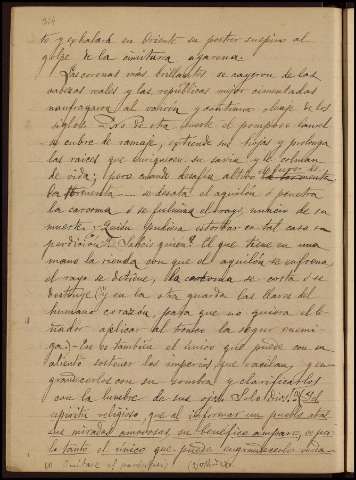 314
to y exhalará en Oriente su postrer suspiro al
golpe de la cimitarra agarena.
Las coronas más brillantes se cayeron de las
cabezas reales y las repúblicas mejor cimentadas
naufragaron al vaivén y continuo oleaje de los
siglos. De otra suerte el pomposo laurel
se cubre de ramaje, extiende sus hojas y prolonga
las raices que enriquecen su savia y le colman
de vida; pero cuando desafía altivo el furor de
la tormenta se desata el aquilón ó penetra
la carcoma ó se fulmina el rayo, anuncio de su
muerte. Quién pudiera estorbar en tal caso su
perdición? Sabeis quién? El que tiene en una
mano la rienda con que el aquilón se enfrena
el rayo se detiene, la carcoma se corta ó se
destruye (1) y en la otra guarda las llaves del
humano corazón, para que no quiera el le-
ñador aplicar al tronco la segur enemi-
ga. ese es tambien el único que puede con su
aliento sostener los imperios que vacilan, y en-
grandecerlos con su sombra y clarificarlos
con la lumbre de sus ojos. Solo Dios. (2) El
espíritu religioso que al informar un pueblo atrae
sus miradas amorosas en benéfico amparo, es por
tanto el único que puede engrandecerlo
(1) (2)